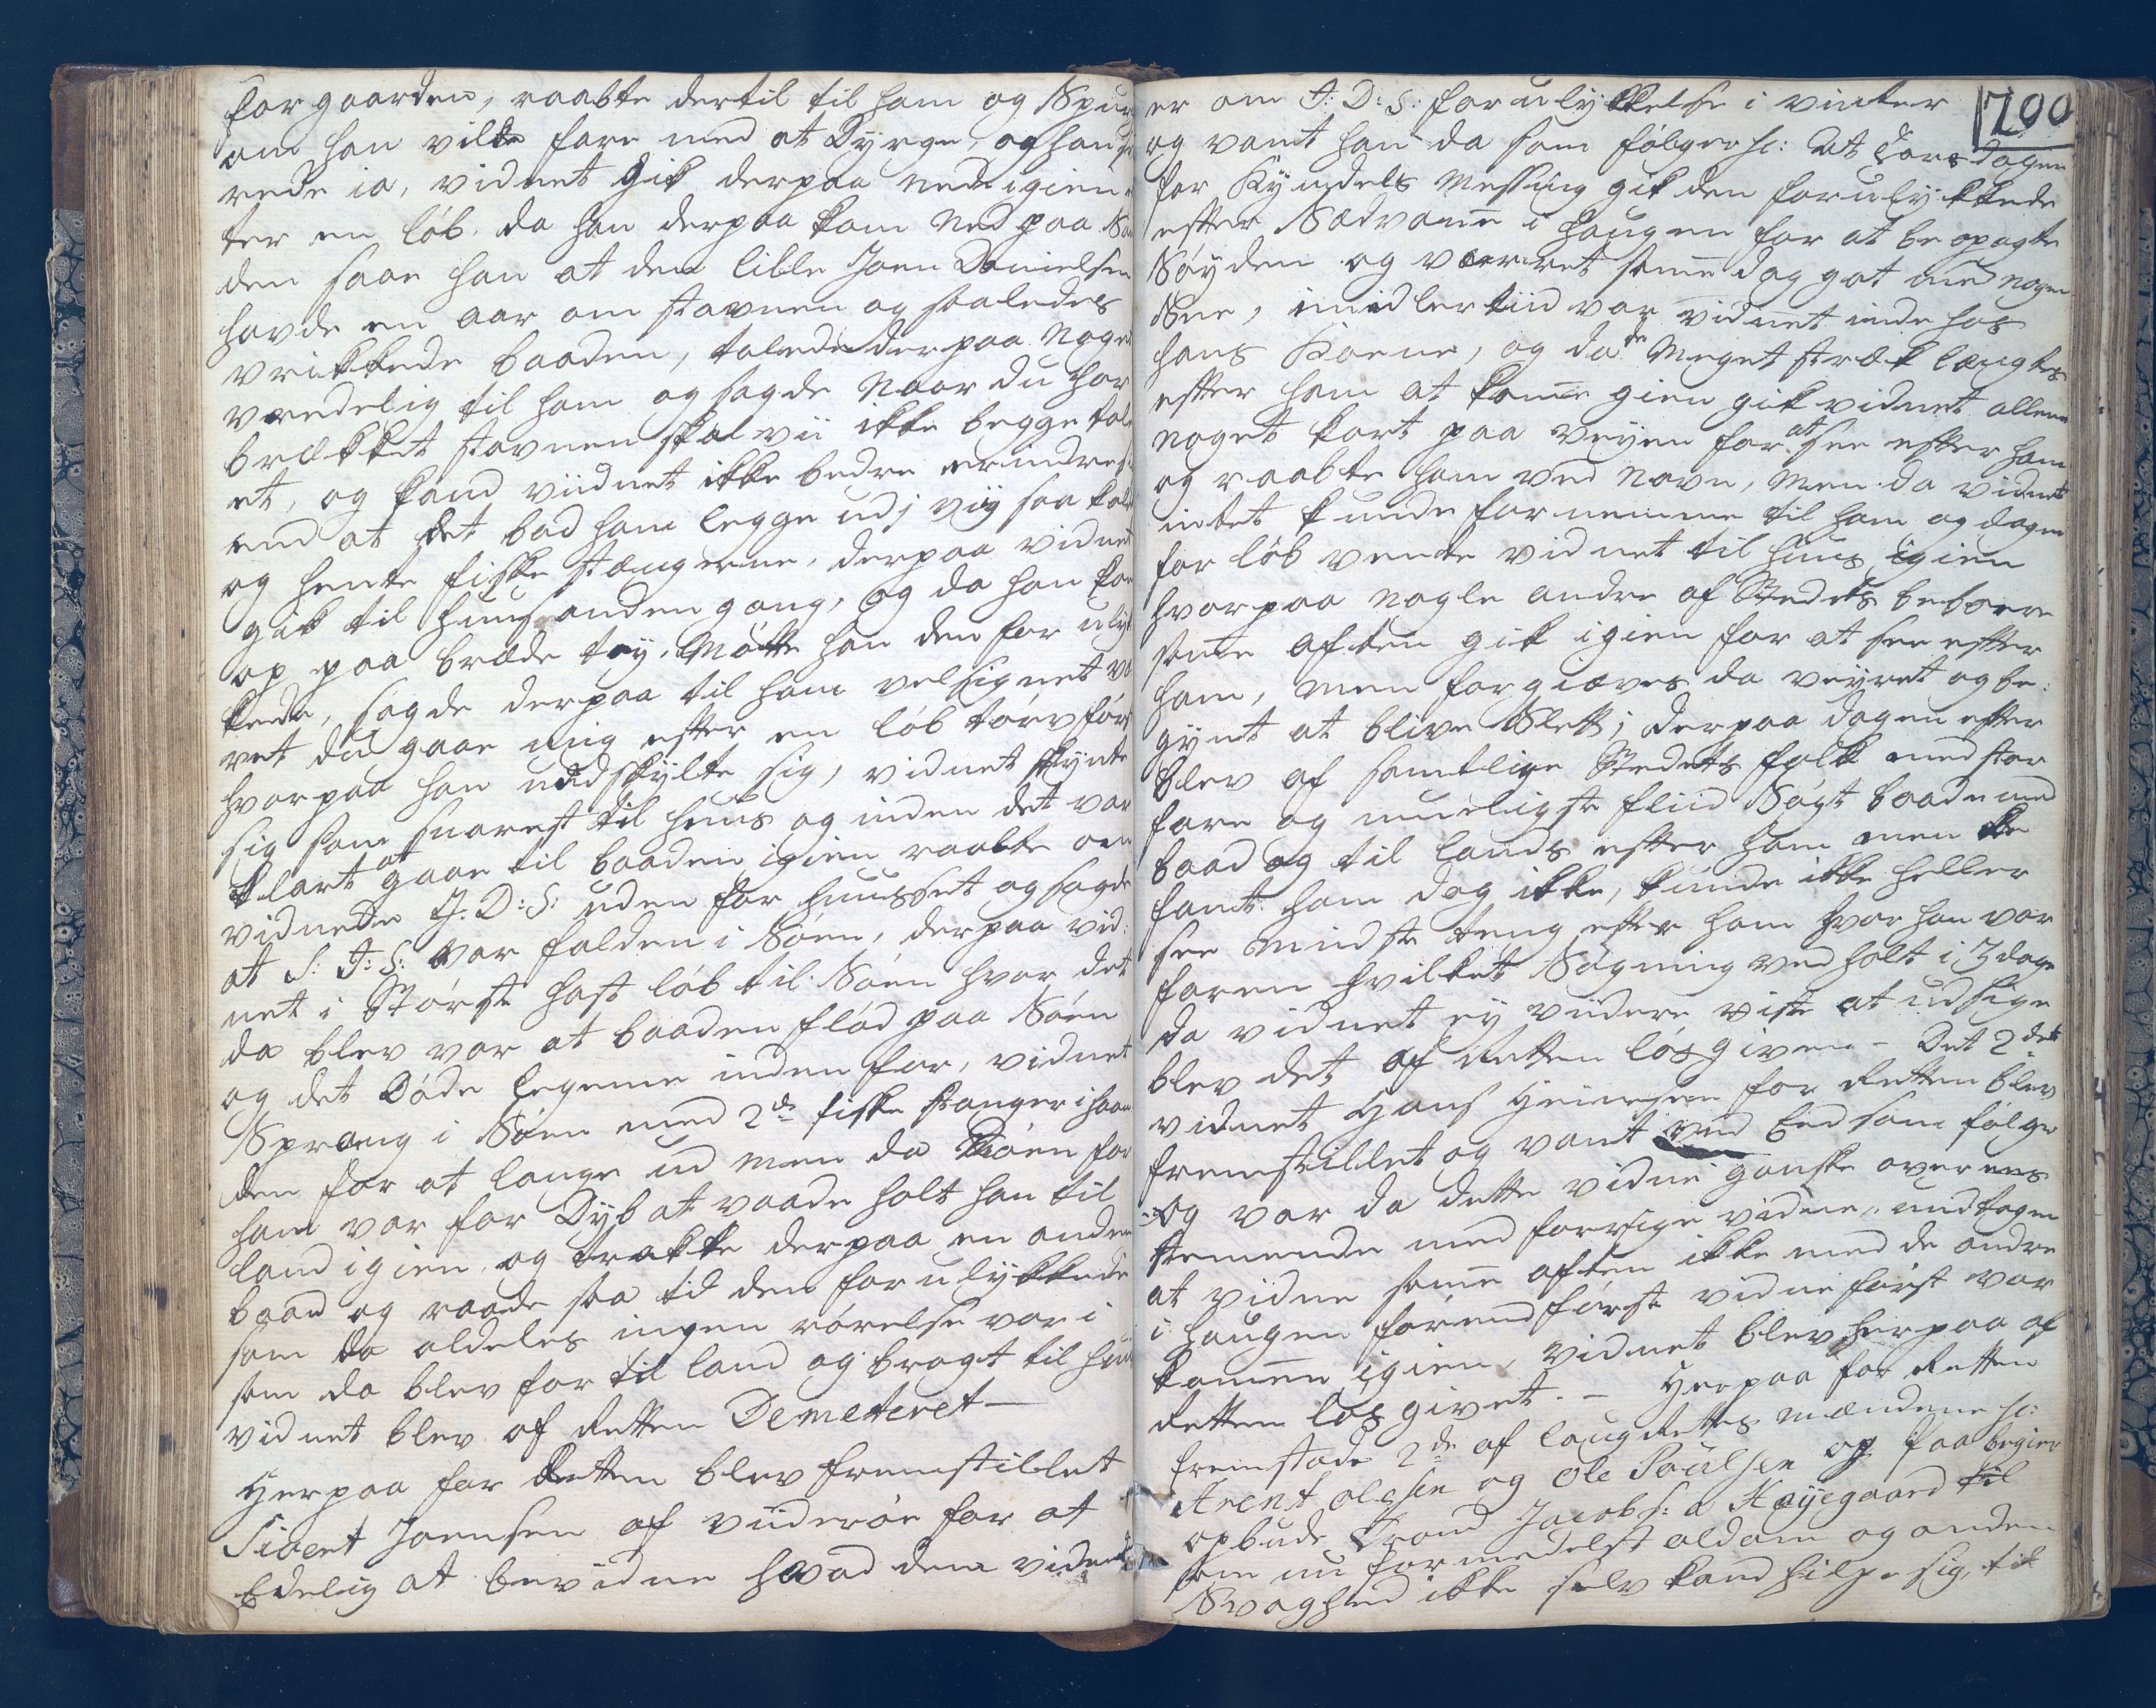 for gaarden, raabte dertil til ham og Spur
om han vilde fare med at Dyrge, og han
rede ia, vidnet gik derpaa ned igien
ter en løb. da han derpaa kom Ned paa
den saae han at den lille Joen Danielsen
havde en aar om stavnen og saaledes
vrikkede baaden, talede derpaa noget
vredelig til ham og sagde Naar du har
brækket stavnen skal vii ikke begge tale
et, og kand viidnet ikke bedre erindre
end at det bad ham legge ud i
og hente fiske stængerne, derpaa vidnet
gik til huus anden gang, og da han kom
op paa bræde tøy, Møtte han den for ulyk
kede, sagde derpaa til ham velsignet væ
ret du gaae mig efter en løb tørv først
hvorpaa han undskylte sig, vidnet skynte
sig som snarest til huus og inden det var
klart at gaae til baaden igien raabte om
vidnede J: D: S: uden for huusset og sagde
at S: J: S: var falden i Søen, derpaa vid:
net i Største hast løb til Søen hvor det
da blev var at baaden flød paa Søen
og det Døde legeme inden for, vidnet
Sprang i Søen med 2de fiske stanger i haan
den for at lange ud men da Søen for
ham var for Dyb at vaade holt han til
land igien og trække derpaa en anden
baad og roede saa til den forulykkede
som da aldeles ingen rørelse var i
som da blev før til land og bragt til huus
vidnet blev af Retten Demeteret —
Herpaa for Retten blev fremstillet
Sivert Joensen af viiderøe for at
Edelig at bevidne hvad dem vidnet
200
er om J: D: S: forulykkelse i vinter
og vant han da som følger sc: At Torsdagen
for Kyndels Messing gik den forulykkede
efter Sædvane i haugen for at be opagte
Søyden og væerret same dag got med nogen
Sne, imidlertiid var vidnet inde hos
hans Kone, og da de Meget stræk længtes
efter ham at kome gien gik vidnet allene
noget kort paa veyen for at see efter ham
og raabte ham ved Navn, Men da vidnet
intet kunde fornemme til ham og dagen
for løb vente vidnet til huus igien
hvorpaa nogle andre af Stedets beboere
same aften gik igien for at see efter
ham, men forgiæves da veyret og be:
gynt at blive Slett; derpaa dagen efter
blev af samtlige Stedets folk med stor
fare og mueligste fliid Søgt baade med
baad og til lands efter ham men de
fant ham dog ikke, kunde ikke heller
see mindste teng efter ham hvor han var
faren hvilket Søgning ved holt i 3 dage
da vidnet ey viidere viste at udsige
blev det af Retten løsgiven – Det 2det
vidnet Hans Heinesen for Retten blev
fremstillet og vant ved Eed som følger
og var da dette vidne ganske overens
stemende med forrige vidne, undtagen
at vidne same aften ikke med de andre
i haugen førend første vidne først var
komen igien, vidnet blev herpaa af
Retten løs givet. – Herpaa for Retten
fremstode 2de af laugRettes mændene sc:
Arent olesen og Ole Poulsen og paa begier
opbude Trond Jacobs: a Høyegaard til
som nu formedelst aldom og anden
Svaghed ikke selv kand hielpe sig, til